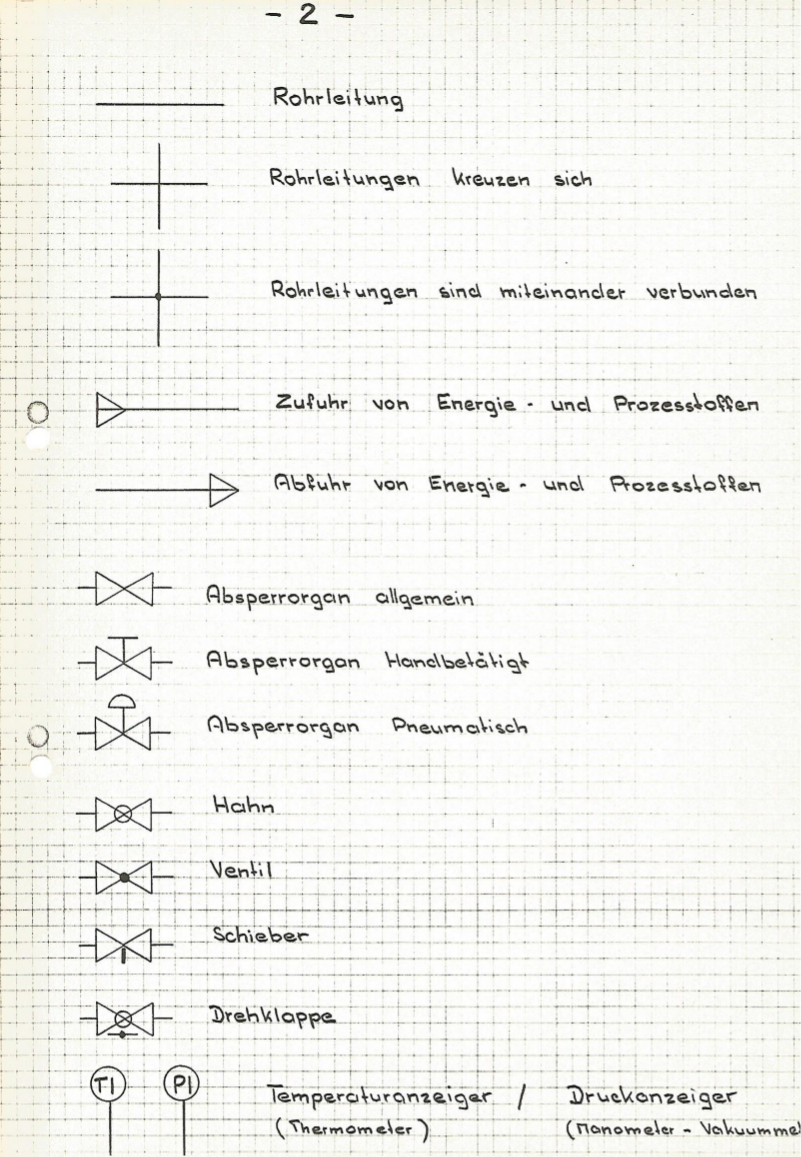 - 2 -
Rohrleitung
Rohrleitungen kreuzen sich
Rohrleitungen sind miteinander verbunden
Zufuhr von Energie - und Prozesstoffen
Abfuhr von Energie - und Prozesstoffen
Absperrorgan allgemein
Absperrorgan Handbetätigt
Absperrorgan Pneumatisch
Hahn
Ventil
Schieber
Drehklappe
TI PI Temperaturanzeiger / Druckanzeiger
(Thermometer) (Manometer - Vakuummet